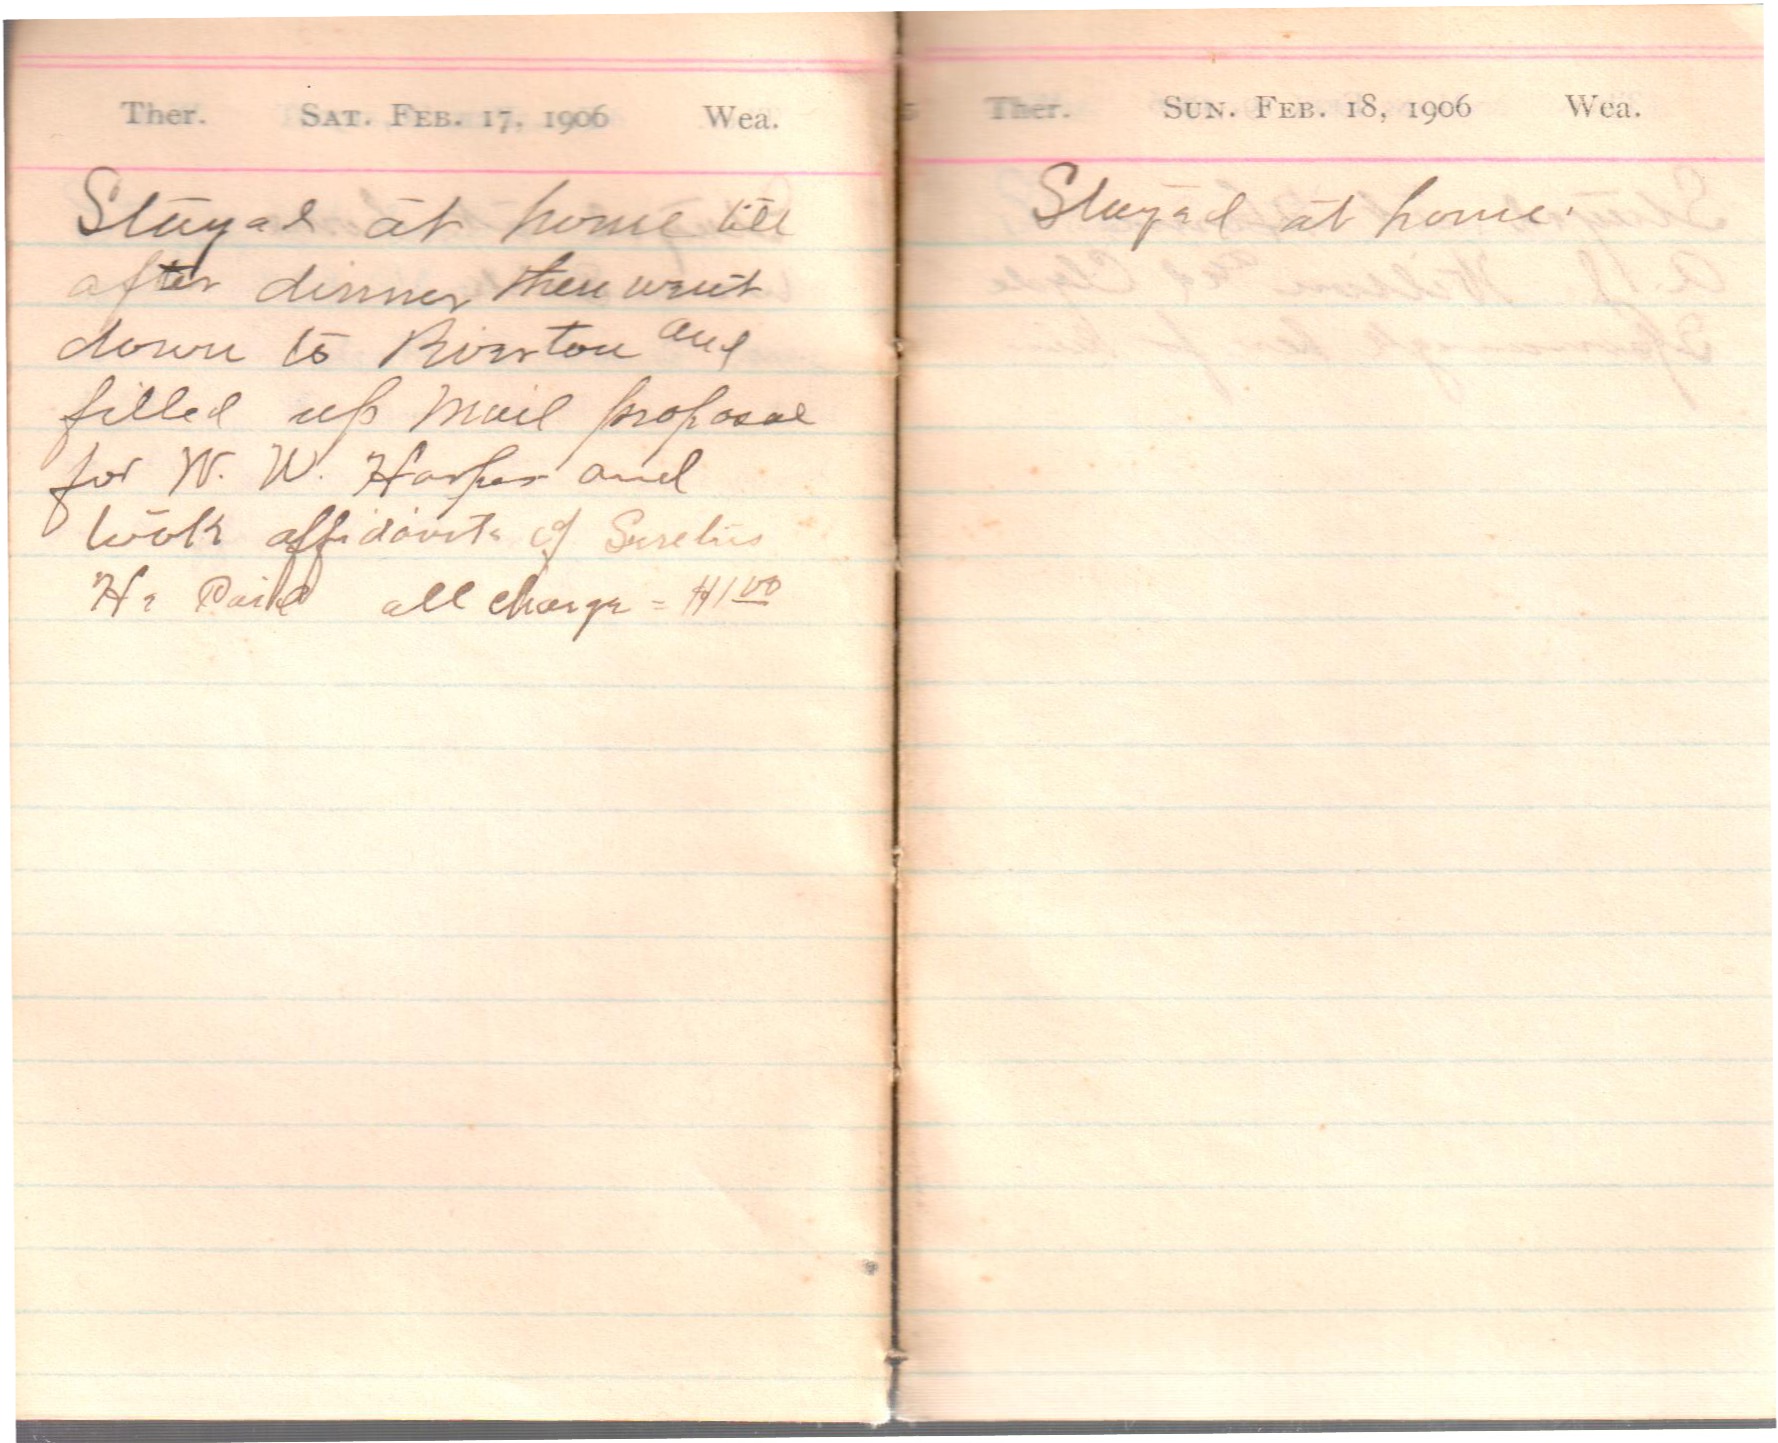 Ther. SAT. FEB. 17, 1906 Wea.
Stayed at home till
after dinner then went
down to Riverton and
filled up Mail proposal
for W. W. Harper and
took affidavits of Sureties
He Paid all charge = $1.00
Ther. SUN. FEB. 18, 1906 Wea.
Stayed at home.